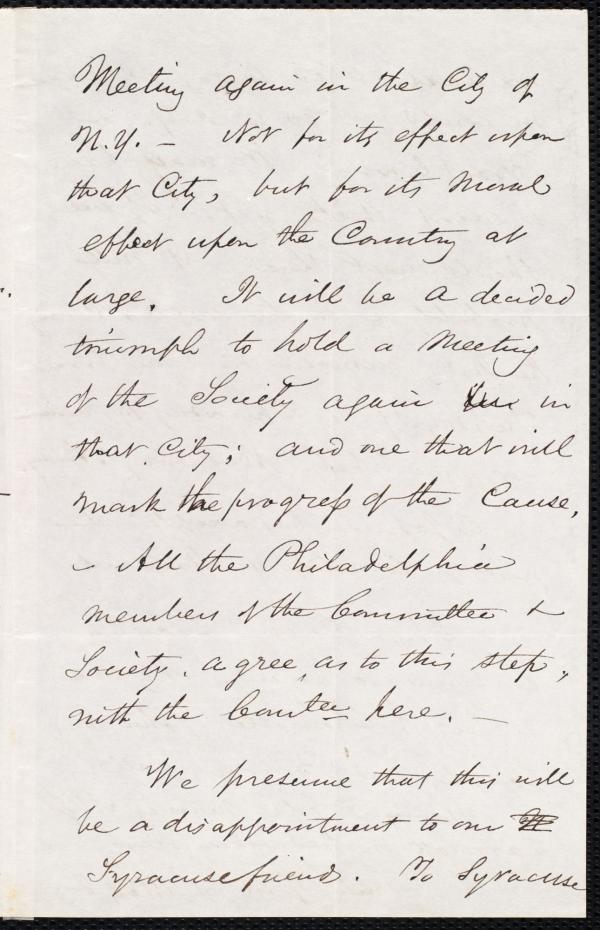 Meeting again in the City of
N.Y. — Not for its effect upon
that City, but for its moral
effect upon the Country at
large. It will be a decided
triumph to hold a Meeting
of the Society again in
that City; and one that will
mark the progress of the Cause.
— All the Philadelphia
members of the Committee &
Society, agree, as to this step,
with the Comtee here. —
We presume that this will
be a disappointment to our
Syracuse friends. To Syracuse